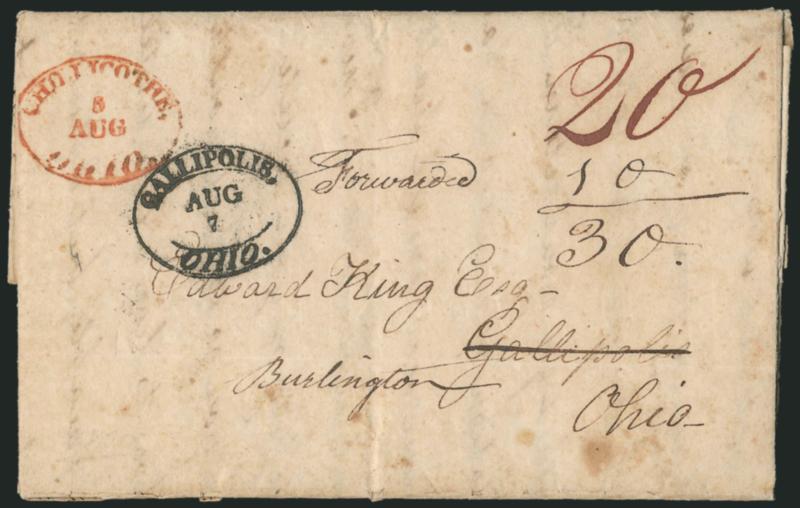 CHILLICOTHE,
5
AUG
OHIO.
GALLIPOLIS,
AUG
7
OHIO.
Forwarded
20
10
30.
Edward King Esq
Gallipolis
Burlington
Ohio